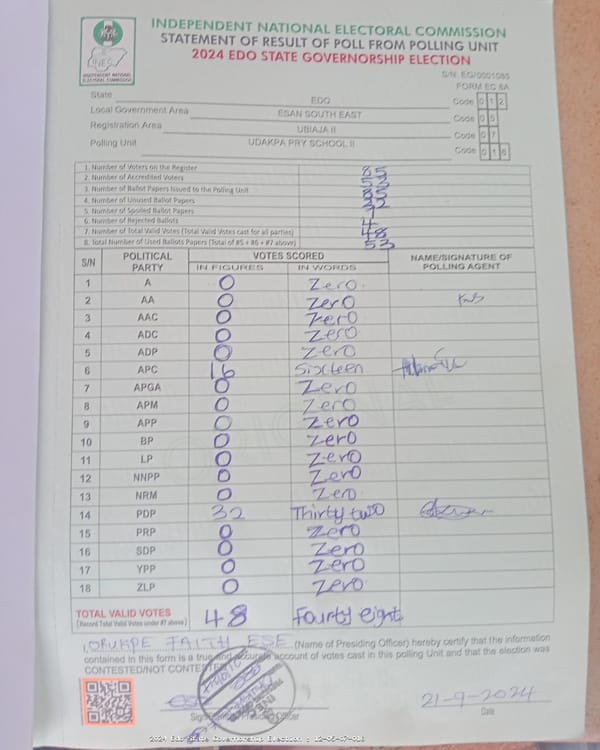 INDEPENDENT NATIONAL ELECTORAL COMMISSION
STATEMENT OF RESULT OF POLL FROM POLLING UNIT
2024 EDO STATE GOVERNORSHIP ELECTION
INEC
INDEPENDENT NATIONAL
ELECTORAL COMMISSION
S/N: EG/0001085
FORM EC 8A
State EDO Code 0 1 2
Local Government Area ESAN SOUTH EAST Code 0 5
Registration Area UBIAJA II Code 0 7
Polling Unit UDAKPA PRY SCHOOL II Code 0 1 8
1. Number of Voters on the Register 85
2. Number of Accredited Voters
3. Number of Ballot Papers Issued to the Polling Unit 85
4. Number of Unused Ballot Papers 32
5. Number of Spoiled Ballot Papers 1
6. Number of Rejected Ballots 4
7. Number of Total Valid Votes (Total Valid Votes cast for all parties) 48
8. Total Number of Used Ballots Papers (Total of #5 + #6 + #7 above) 53
S/N POLITICAL PARTY VOTES SCORED NAME/SIGNATURE OF POLLING AGENT
IN FIGURES IN WORDS
1 A 0 Zero
2 AA 0 Zero
3 AAC 0 Zero
4 ADC 0 Zero
5 ADP 0 Zero
6 APC 16 Sixteen
7 APGA 0 Zero
8 APM 0 Zero
9 APP 0 Zero
10 BP 0 Zero
11 LP 0 Zero
12 NNPP 0 Zero
13 NRM 0 Zero
14 PDP 32 Thirty two
15 PRP 0 Zero
16 SDP 0 Zero
17 YPP 0 Zero
18 ZLP 0 Zero
TOTAL VALID VOTES 48 Fourty eight
(Record Total Valid Votes under #7 above)
I, FAITH ESE (Name of Presiding Officer) hereby certify that the information
contained in this form is a true and accurate account of votes cast in this polling Unit and that the election was
CONTESTED/NOT CONTESTED
21-9-2024
Date
2024 Edo State Governorship Election : 12-05-07-018